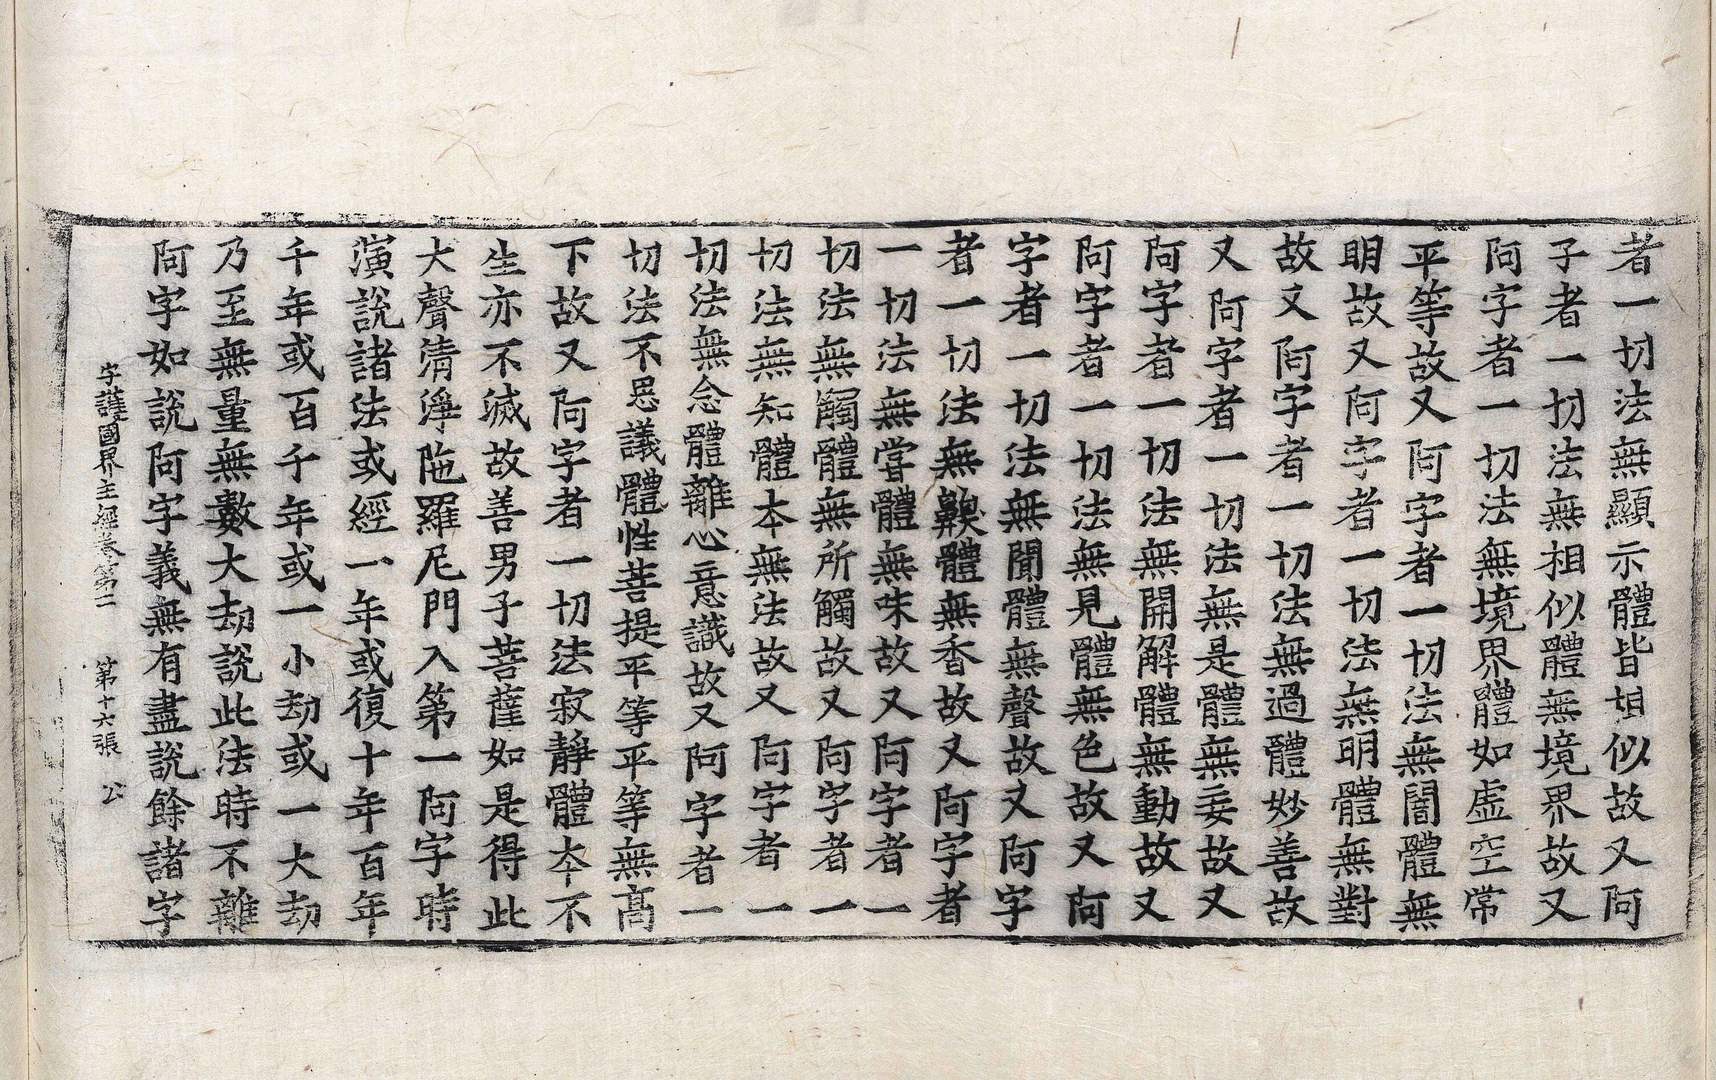 者一切法無顯示體皆相似故又阿
子者一切法無相似體無境界故又
阿字者一切法無境界體如虛空常
平等故又阿字者一切法無闇體無
明故又阿字者一切法無明體無對
故又阿字者一切法無過體妙善故
又阿字者一切法無是體無妄故又
阿字者一切法無開解體無動故又
阿字者一切法無見體無色故又阿
字者一切法無聞體無聲故又阿字
者一切法無齅體無香故又阿字者
一切法無甞體無味故又阿字者一
切法無觸體無所觸故又阿字者一
切法無知體本無法故又阿字者一
切法無念體離心意識故又阿字者一
切法不思議體性菩提平等平等無高
下故又阿字者一切法寂靜體本不
生亦不滅故善男子菩薩如是得此
大聲清淨陁羅尼門入第一阿字時
演說諸法或經一年或復十年百年
千年或百千年或一小劫或一大劫
乃至無量無數大劫說此法時不離
阿字如說阿字義無有盡說餘諸字
守護國界主經卷第二 第十六張 公